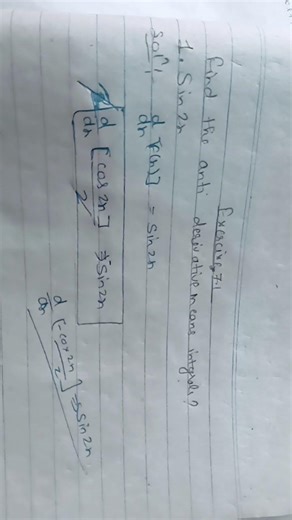 Exercise 7.1
Find the anti derivative means integrals?
1. Sin2x
Solⁿ, d/dx [F(x)] = sin2x
d/dx [-cos2x/2] ⇒ sin2x
d/dx [-cos2x/2] ⇒ sin2x